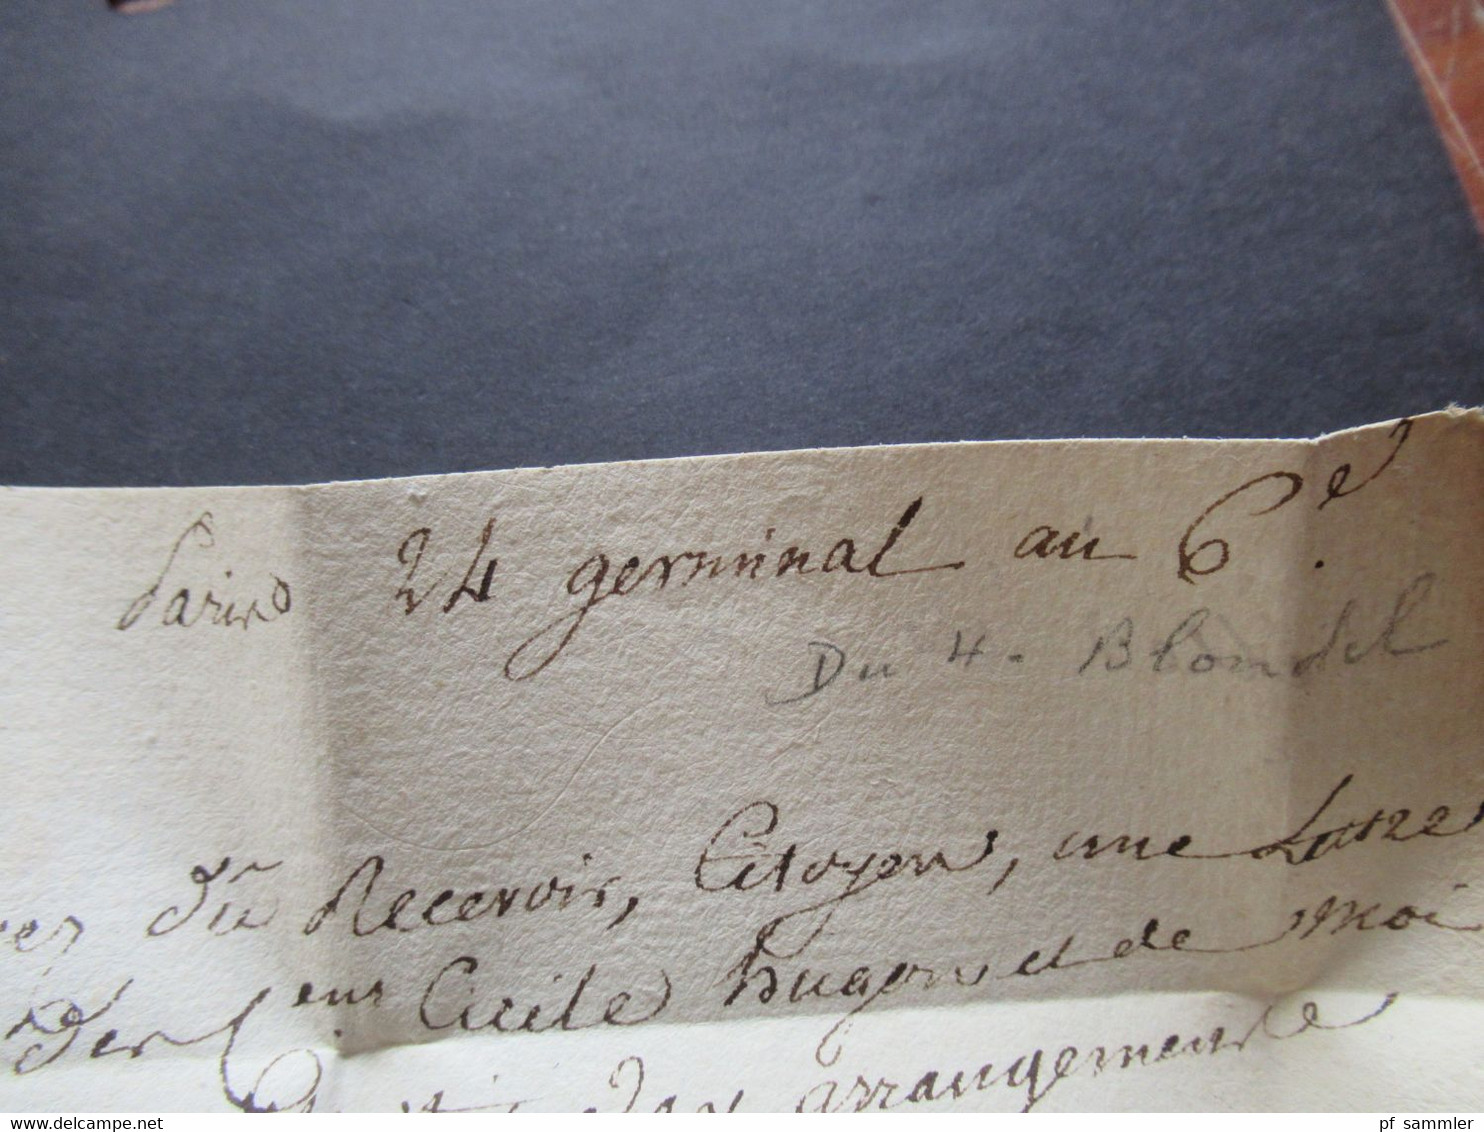 Paris 24 germinal an 6e.
Du 4. Blondel
du Recevoir, Citoyen, une Lettre
Der C.ens Cecile hugon et de moi
arrangement
www.delcampe.net
pf sammler